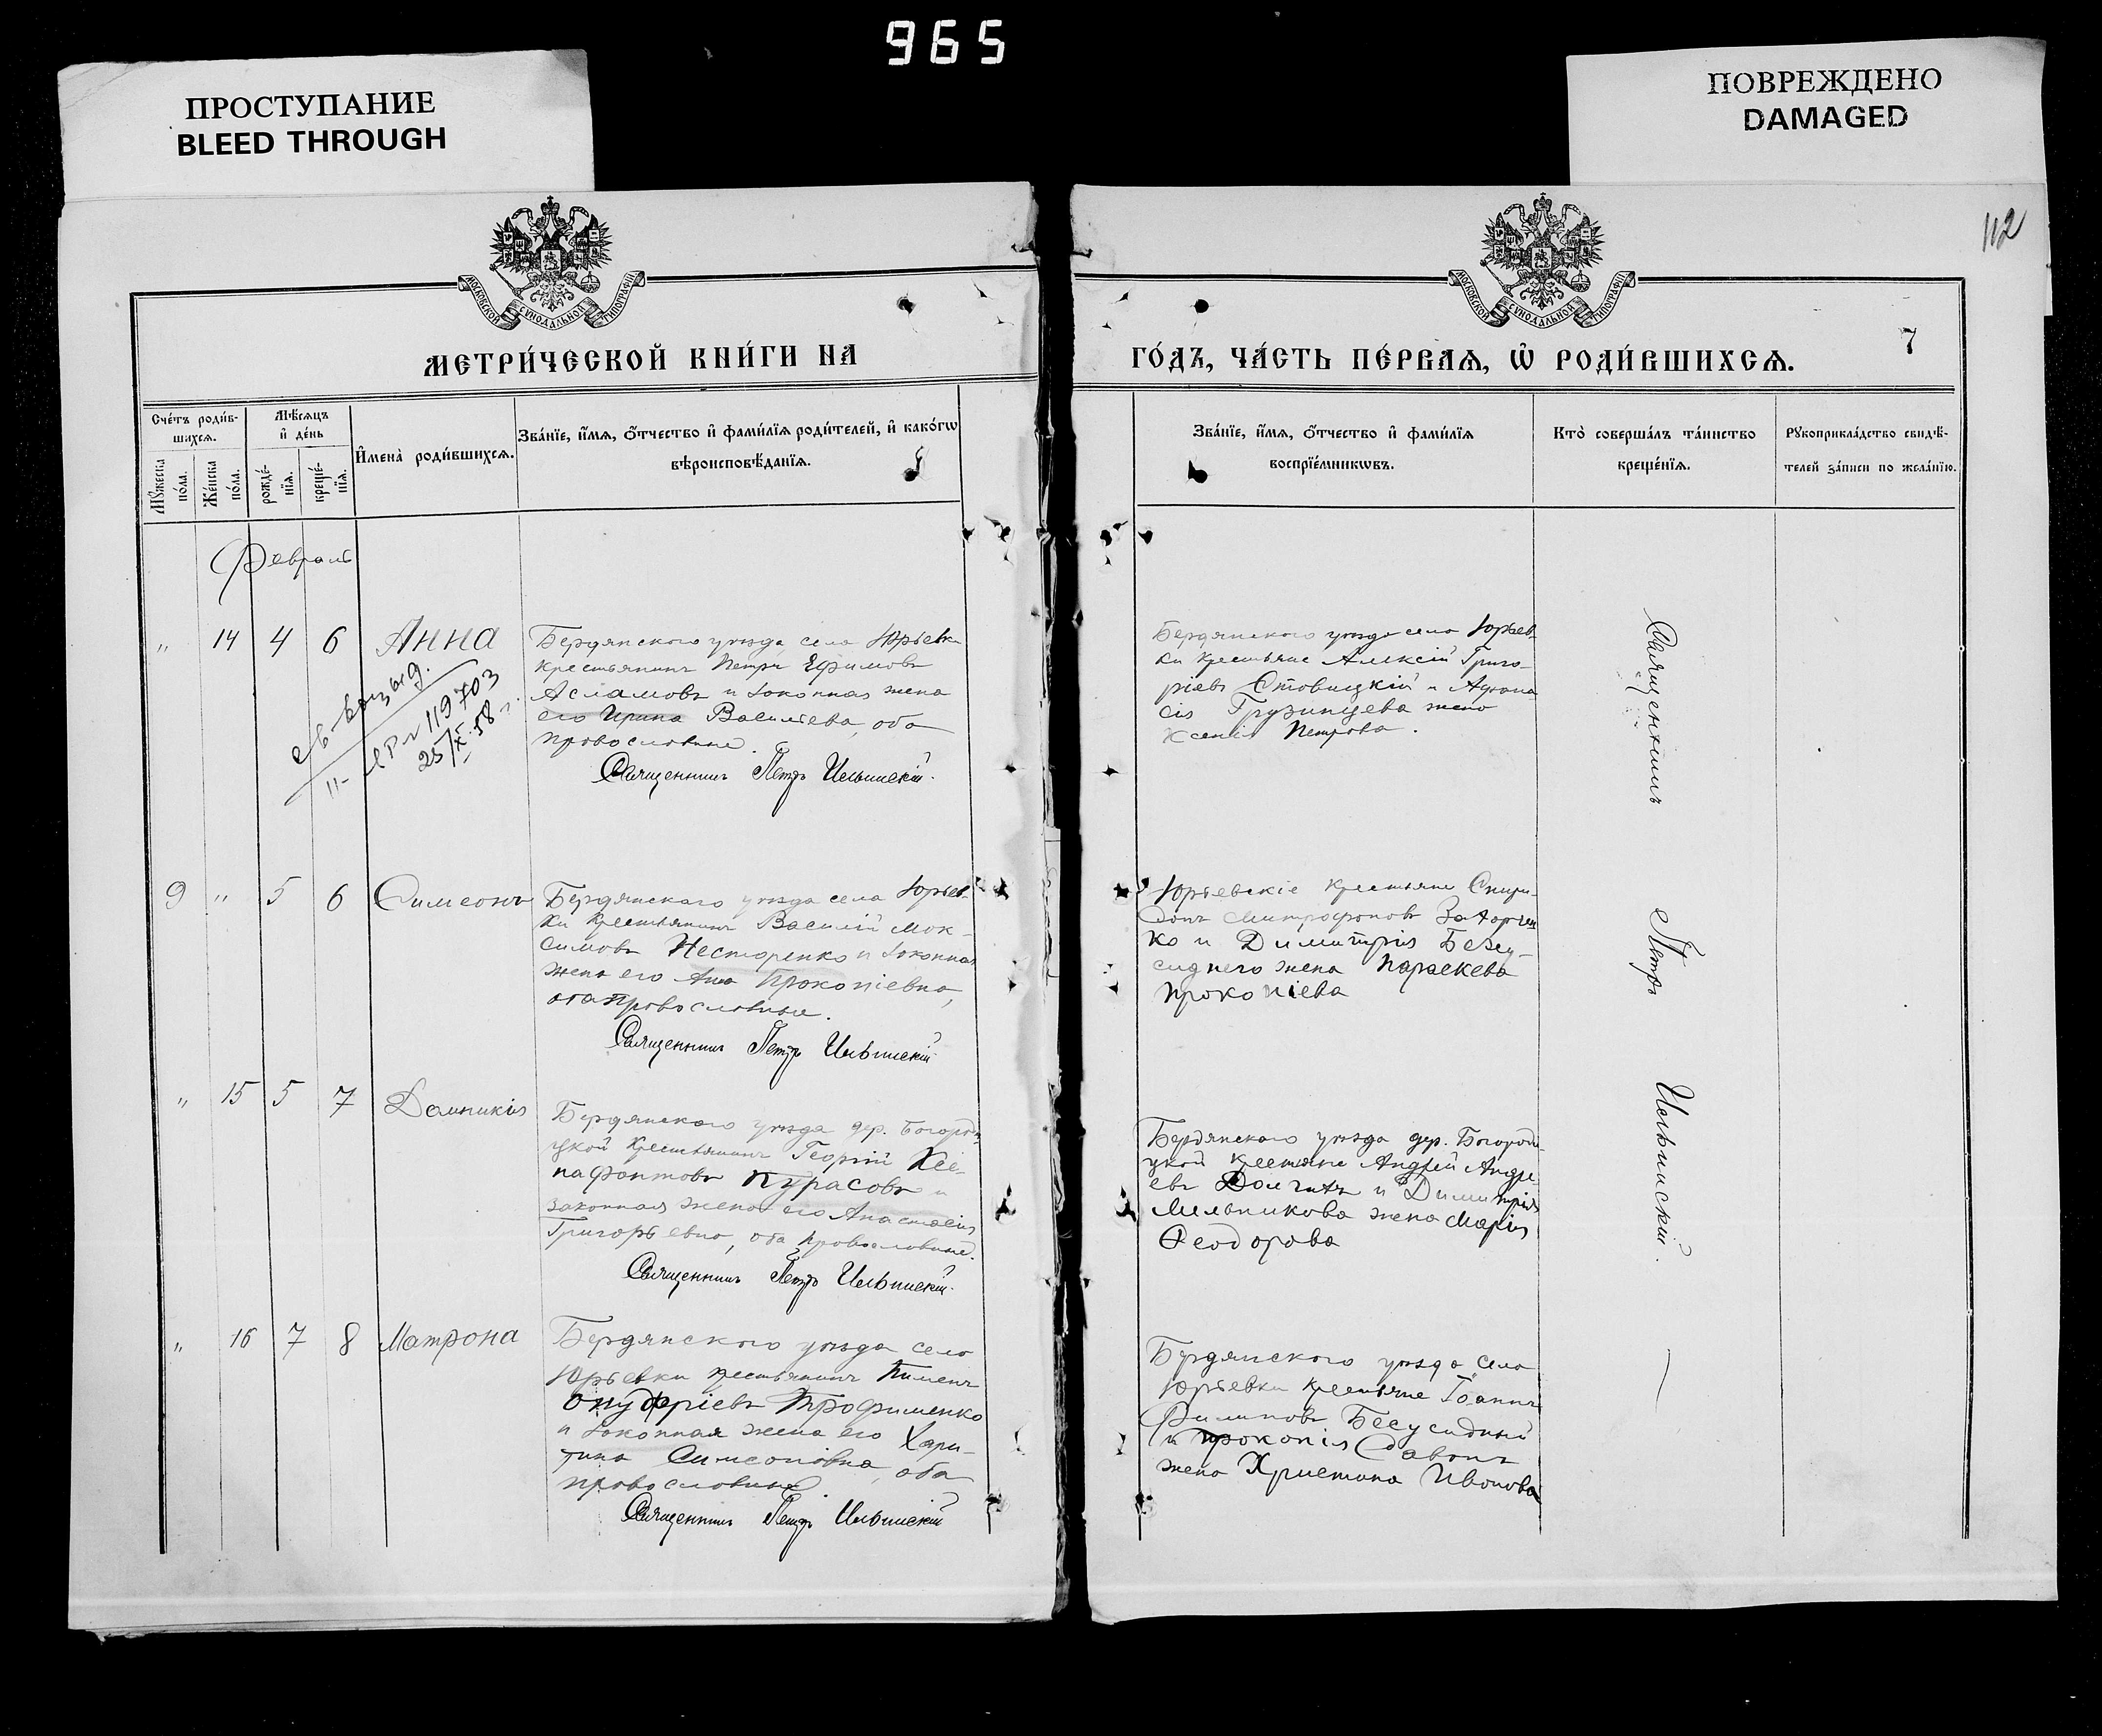 965
ПРОСТУПАНИЕ
BLEED THROUGH
ПОВРЕЖДЕНО
DAMAGED
112
МОСКОВСКОЙ СѴНОДАЛЬНОЙ ТИПОГРАФІИ
МОСКОВСКОЙ СѴНОДАЛЬНОЙ ТИПОГРАФІИ
7
МЕТРИ́ЧЕСКОЙ КНИ́ГИ НА
ГО́ДЪ, ЧА́СТЬ ПЕ́РВАѦ, Ѡ҆ РОДИ́ВШИХСѦ.
Сче́тъ роди́в-
шихсѧ.
Мѣ́сѧцъ
и҆ де́нь
Мꙋ́жеска
по́ла.
Же́нска
по́ла.
рожде́-
нїѧ.
креще́-
нїѧ.
И҆мена̀ роди́вшихсѧ.
Зва́нїе, и҆́мѧ, ѻ҆́тчество и҆ фами́лїѧ роди́телей, и҆ како́гѡ
вѣроисповѣ́данїѧ.
Зва́нїе, и҆́мѧ, ѻ҆́тчество и҆ фами́лїѧ
воспрїе́мникѡвъ.
Кто̀ соверша́лъ та́инство
креще́нїѧ.
Рꙋкоприкла́дство свидѣ́-
телей за́писи по жела́нїю.
Февраль
" 14 4 6 Анна
Бердянскаго уѣзда села Юрьевки
крестьянинъ Петръ Ефимовъ
Асламовъ и законная жена
его Ирина Васильева, оба
православные.
Священникъ Петръ Ильинскій.
№ 119703
25/X 58 г.
Бердянскаго уѣзда села Юрьев-
ки крестьяне Алексій Григо-
ріевъ Стовицкій и Афана-
сія Грузинцева жена
Ксенія Петрова.
9 " 5 6 Симеонъ
Бердянскаго уѣзда села Юрьев-
ки крестьянинъ Василій Мак-
симовъ Несторенко и законная
жена его Анна Прокопіевна,
оба православные.
Священникъ Петръ Ильинскій
Юрьевскіе крестьяне Спири-
донъ Митрофановъ
ко и Димитрія Безсу-
сиднего жена Параскева
Прокопіева
" 15 5 7 Домникія
Бердянскаго уѣзда дер. Богороди
цкой крестьянинъ Георгій Ксе-
нафонтовъ Курасовъ и
законная жена его Анастасія
Григорьевна, оба православные.
Священникъ Петръ Ильинскій.
Бердянскаго уѣзда дер. Богороди
цкой крестьяне Андрей Андре
евъ и Димитрія
Мельникова жена Марія
Феодорова
" 16 7 8 Матрона
Бердянскаго уѣзда села
Юрьевки крестьянинъ Пименъ
Онуфріевъ Трофименко
и законная жена его Хари-
тина Симеоновна, оба
православные.
Священникъ Петръ Ильинскій
Бердянскаго уѣзда села
Юрьевки крестьяне Іоаннъ
Филиповъ Бесусидный
и Прокопія
жена Христина Иванова
Священникъ
Петръ
Ильинскій.